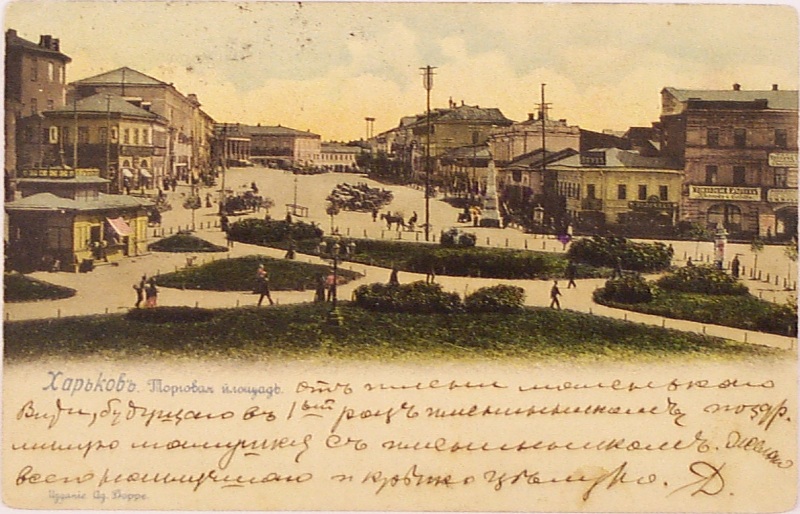 Харьковъ. Торговая площадь. отъ имени маленькаго
Види, будущаго въ 1ый разъ имениникомъ, поздр.
милую мамушку съ имениникомъ. Желаю
всего наилучшаго и крѣпко цѣлую. Д.
Изданіе Ад. Форре.